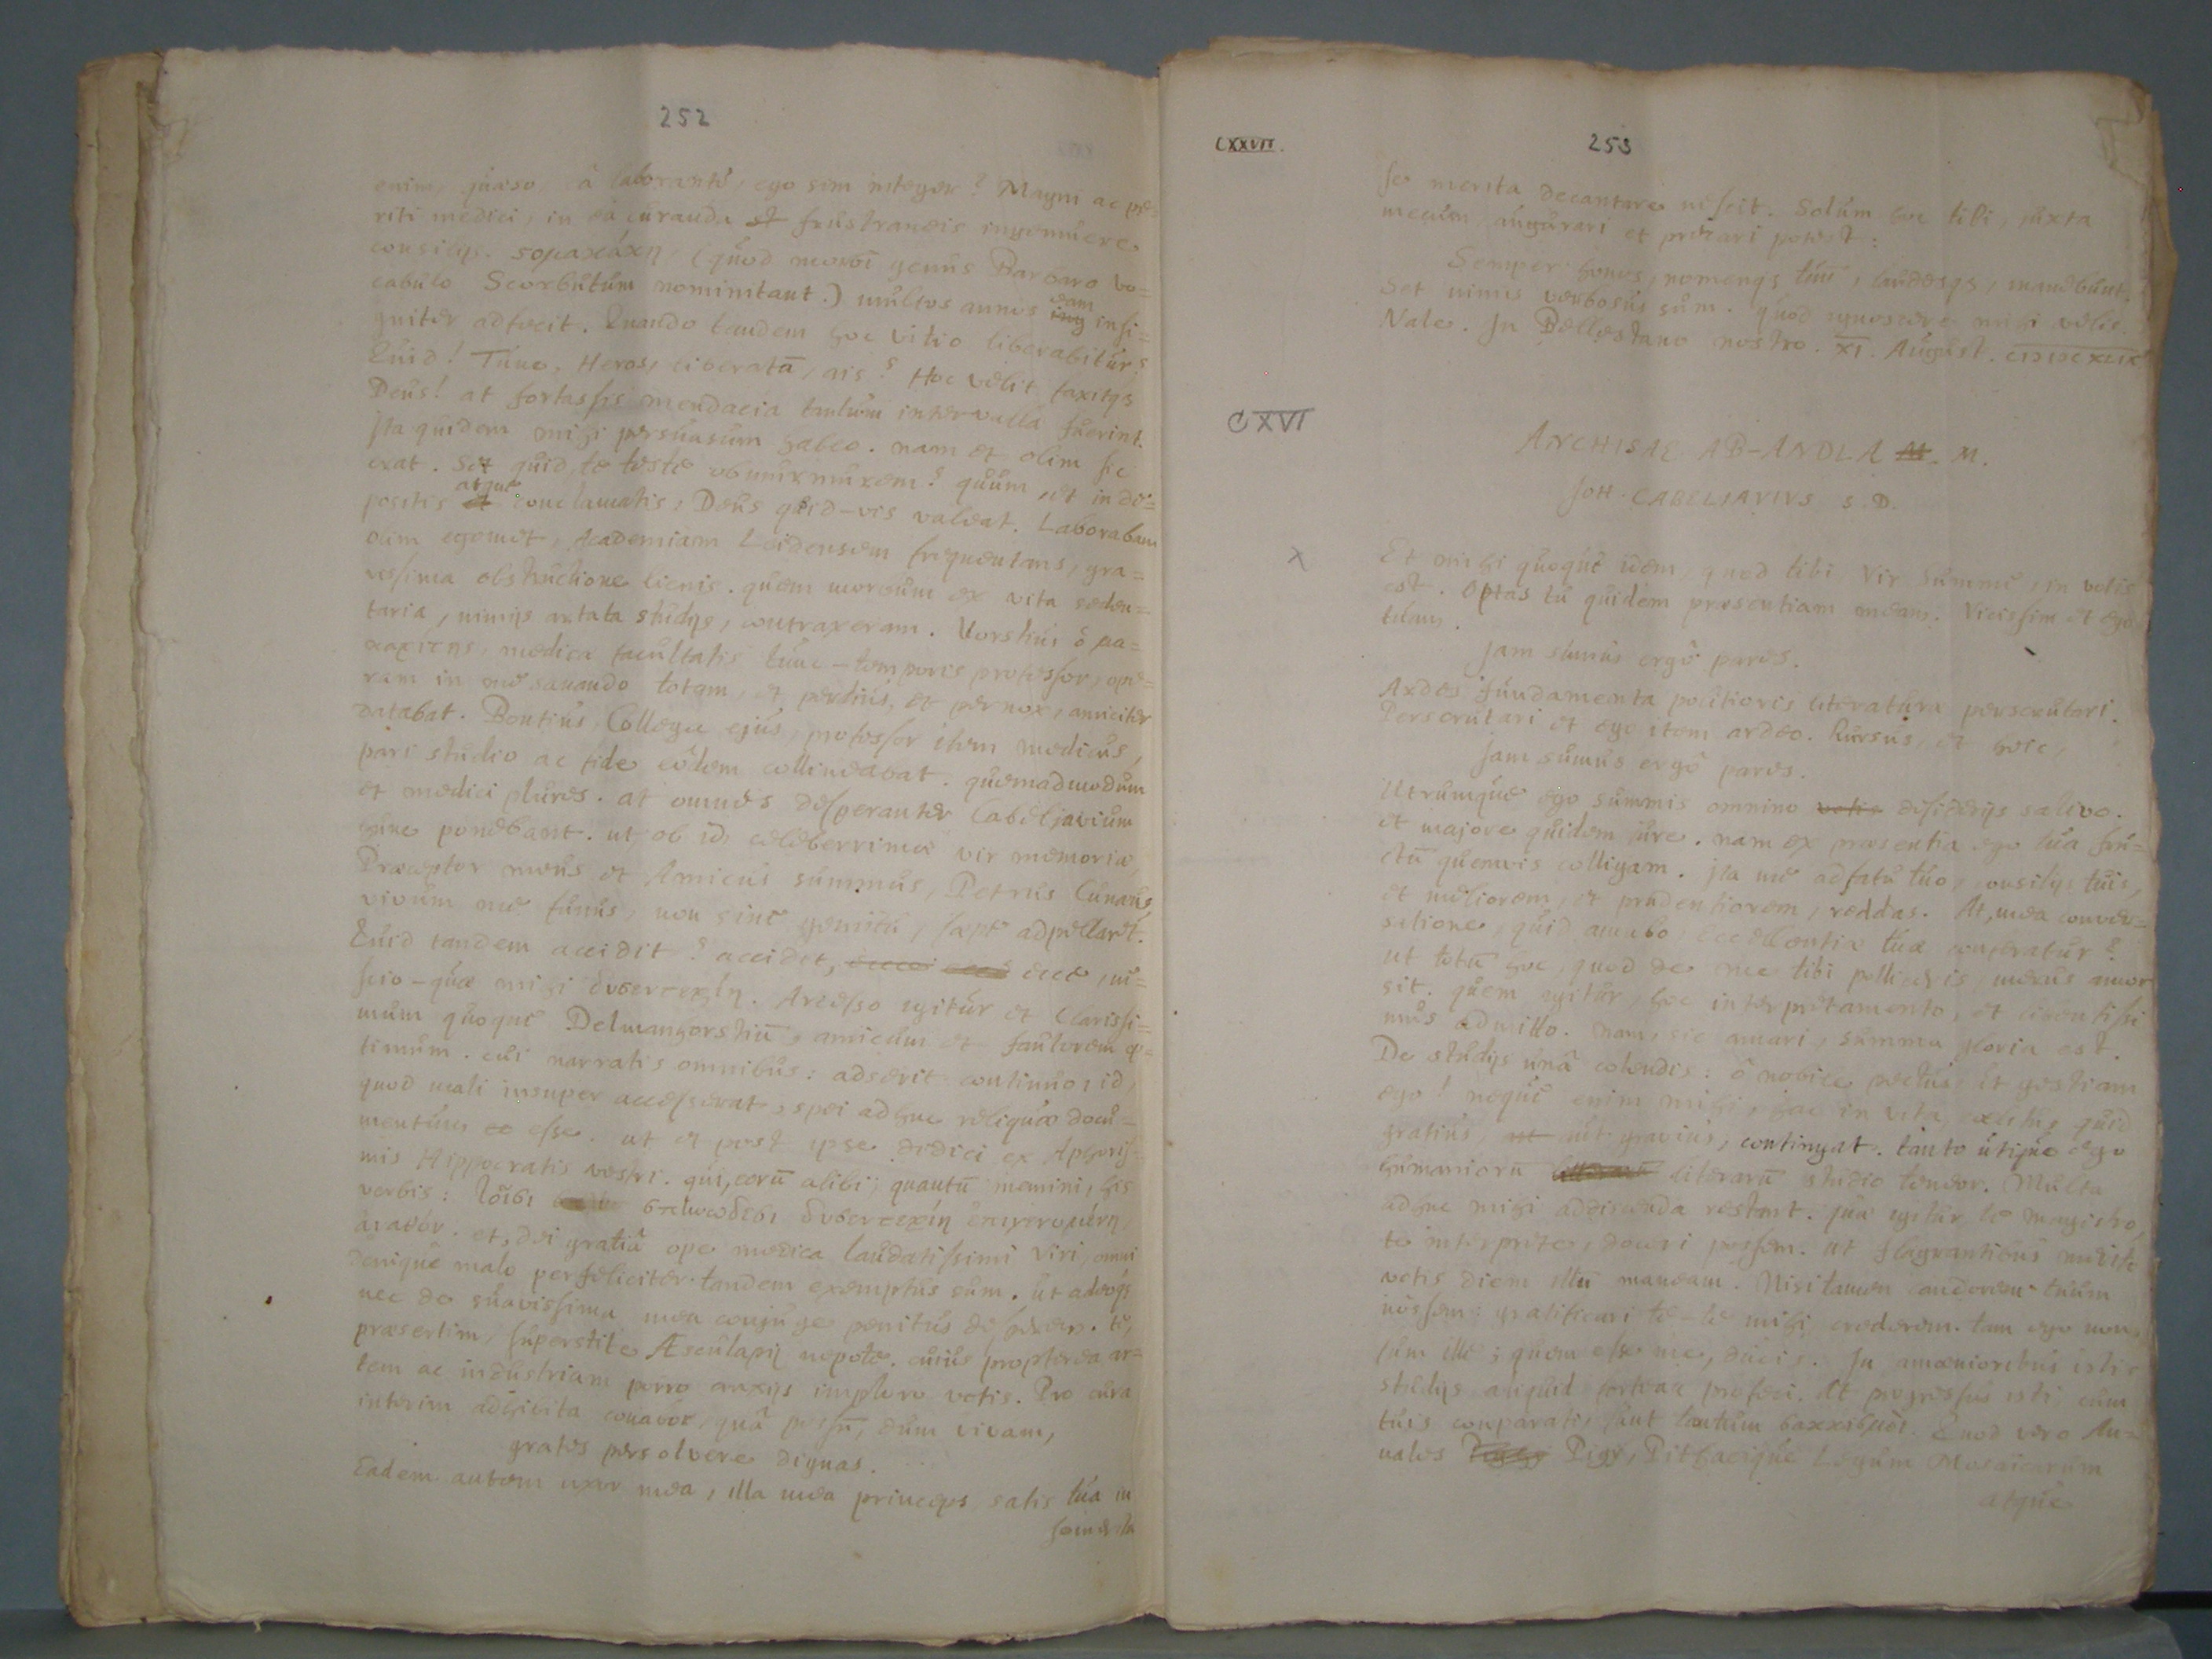 252
enim, quæso, eâ laborante, ego sim integer? Magni ac pe=
riti medici, in eâ curanda et frustraneis ingemuere
consilijs. (quod morbi genus Barbaro vo=
cabulo Scorbutum nominitant.) multos annos eam insi=
gniter adfecit. Quando tandem hoc vitio liberabitur?
Quid! Tunc, Heros, liberatā, ais? Hoc velit faxitqs
Deus! at fortassis mendacia tantum intervalla fuerint.
Ita quidem mihi persuasum habeo. nam et olim sic
erat. Set quid, te teste obmurmurem? quum, et in de=
positis atque conclamatis, Deus quid-vis valeat. Laborabam
olim egomet, Academiam Leidensem frequentans, gra=
vissima obstructione lienis. quem morbum ex vita seden=
taria, nimijs artata studijs, contraxeram. Vorstius ὁ μα=
καρίτης, medica facultatis tunc-temporis professor, ope=
ram in me sanando totam, et perdius, et pernox, amiciter
databat. Bontius, Collega ejus, professor item medicus,
pari studio ac fide eôdem collineabat. quemadmodum
et medici plures. at omnes desperanter Cabeljavium
hunc ponebant. ut, ob id, celeberrimæ vir memoriæ,
Præceptor meus et Amicus summus, Petrus Cunæus,
vivum me funus, non sine gemitu, sæpe adpellaret.
Quid tandem accidit? accidit, ecce, ne=
scio-quæ mihi δυσεντερίη. Arcesso igitur et Clarissi=
mum quoque Delmanhorstiū, amicum et fautorem op=
timum. cui narratis omnibus: adserit continuo, id,
quod mali insuper accesserat, spei adhuc reliquæ docu=
mentum esse. ut et post ipse didici ex Aphoris=
mis Hippocratis vestri. qui, eorū alibi, quantū memini, his
verbis: τοῖσι σπληνώδεσι δυσεντερίη ἐπιγενομένη
ἀγαθόν. et, dei gratiâ ope medica laudatissimi viri, omni
denique malo perfeliciter tandem exemptus sum. ut adeoqs
nec de suavissima mea conjuge penitus desperem. te,
præsertim, superstite Æsculapij nepote. cujus propterea ar=
tem ac industriam porro anxijs imploro votis. Pro cura
interim adhibita conabor, quâ possū, dum vivam,
grates persolvere dignas.
Eadem autem uxor mea, illa mea princeps satis tua in
semerita
CXXVII.
253
se merita decantare nescit. Solum hoc tibi, juxta
mecum augurari et precari potest:
Semper honos, nomenqs tuū, laudesqs, manebunt.
Set nimis verbosus sum. quod ignoscere mihi velis.
Vale. In Bellestano nostro. XI. August. CIƆIƆCXLIX
CXVI
ANCHISAE AB-ANDLA M.
JOH. CABELIAVIVS S.D.
X
Et mihi quoque idem, quod tibi Vir Summe, in votis
est. Optas tu quidem præsentiam meam. Vicissim et ego
tuam.
Jam sumus ergô pares.
Ardes fundamenta politioris literaturæ perscrutari.
Perscrutari et ego item ardeo. Rursus, et heic,
Jam sumus ergô pares.
Utrumque ego summis omnino desiderijs salivo.
et majore quidem jure. nam ex præsentia ego tua fru=
ctū quemvis colligam. Ita me adfatu tuo, consilijs tuis,
et meliorem, et prudentiorem, reddas. At, mea conver=
satione, quid amabo, Excellentiæ tuæ conferatur?
ut totū hoc, quod de me tibi polliceris, merus amor
sit. quem igitur, hoc interpretamento, et libentissi
mus admitto. nam, sic amari, summa gloria est.
De studijs unâ colendis: ô nobile pectus, ut gestiam
ego! neque enim mihi, hac in vita, exlitus quid
gratius, aut gravius, contingat. tanto utique ego
humaniorū literarū studio teneor. Multa
adhuc mihi addiscenda restant. quæ igitur te magistro,
te interprete, doceri possem. ut flagrantibus
votis diem illū maneam. Nisi tamen candorem tuum
nôssem: gratificari te-te mihi crederem. tam ego non
sum ille; quem esse me, ducis. In amænioribus istis
studijs aliquid fortean profeci. At progressus isti, cum
tuis comparati, sunt tantum. Quod vero An=
nales Pigr, Pithæique Legum Mosaicarum
atque